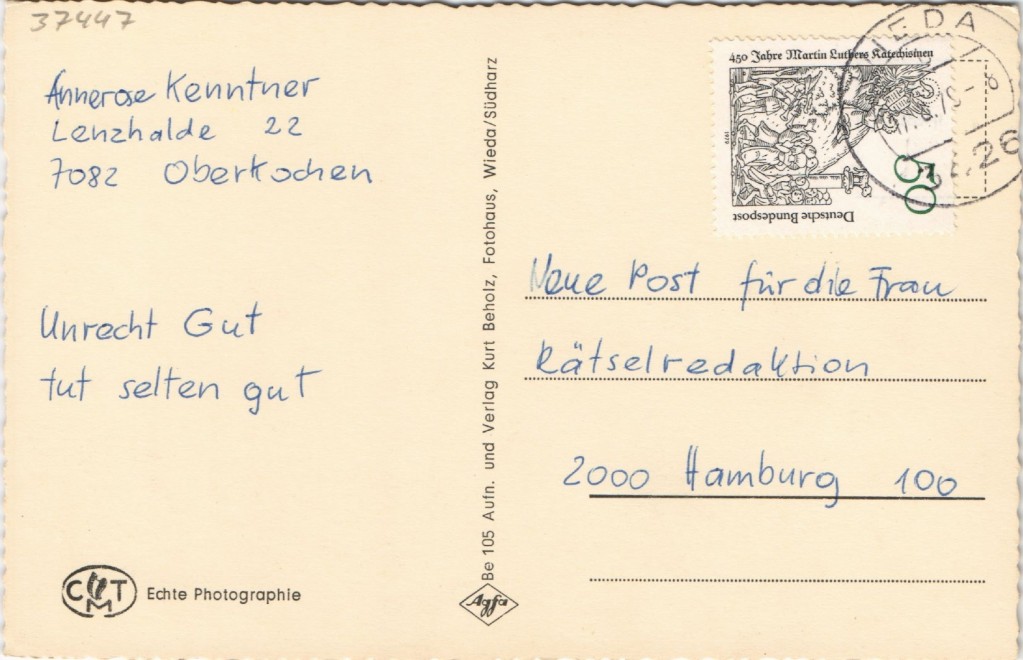 37447
Annerose Kenntner
Lenzhalde 22
7082 Oberkochen
Unrecht Gut
tut selten gut
C M T
Echte Photographie
Be 105 Aufn. und Verlag Kurt Beholz, Fotohaus, Wieda/Südharz
Agfa
450 Jahre Martin Luthers Katechismen
1979
50
Deutsche Bundespost
IEDA
Neue Post für die Frau
Rätselredaktion
2000 Hamburg 100